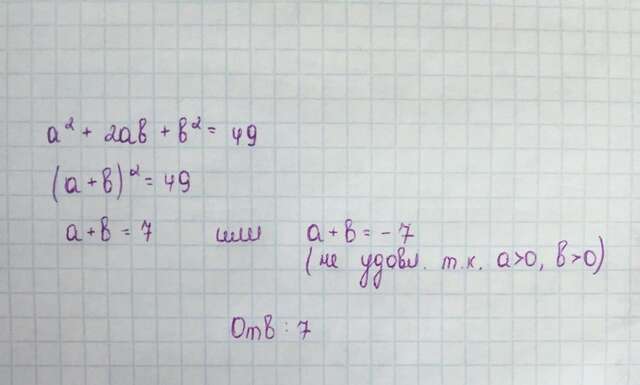 a² + 2ab + b² = 49
(a + b)² = 49
a + b = 7 или a + b = - 7
(не удовл. т.к. a>0, b>0)
Отв : 7